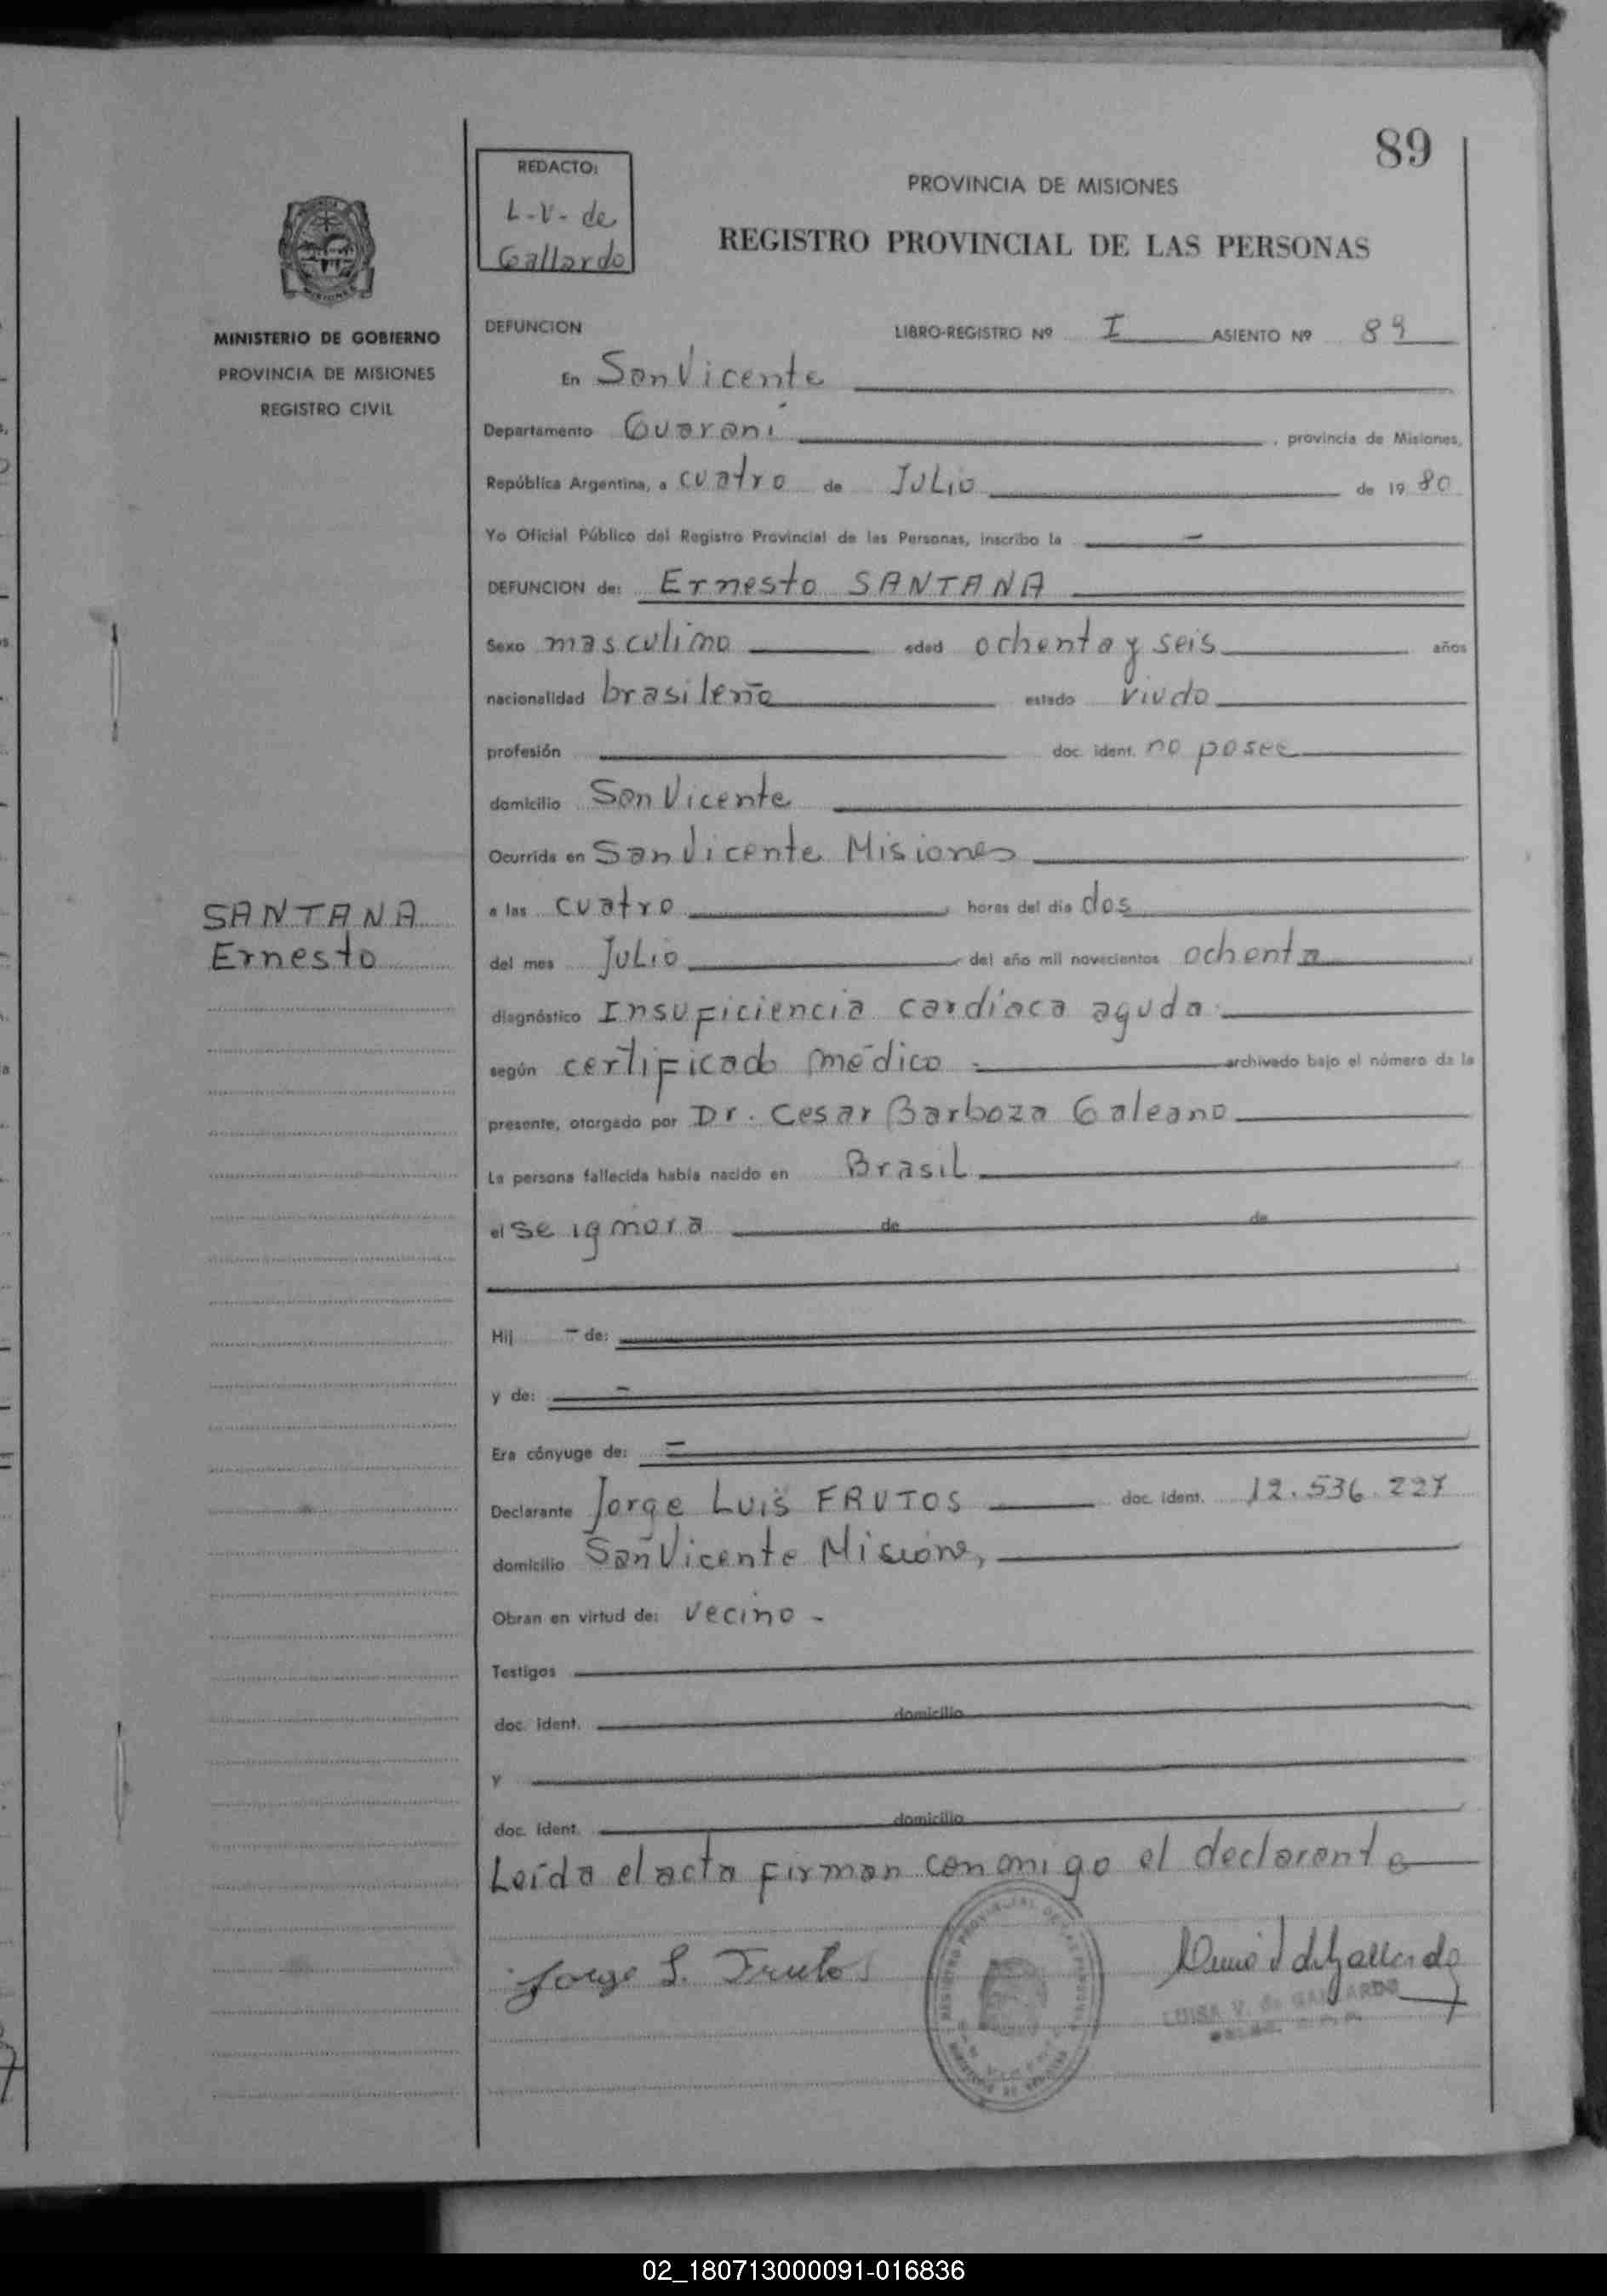 89
REDACTO:
L-V- de
Gallardo
PROVINCIA DE MISIONES
REGISTRO PROVINCIAL DE LAS PERSONAS
MISIONES
MINISTERIO DE GOBIERNO
PROVINCIA DE MISIONES
REGISTRO CIVIL
DEFUNCION LIBRO-REGISTRO Nº I ASIENTO Nº 89
En San Vicente
Departamento Guaraní, provincia de Misiones,
República Argentina, a cuatro de JULIO de 19 80
Yo Oficial Público del Registro Provincial de las Personas, inscribo la -
DEFUNCION de: Ernesto SANTANA
Sexo masculino edad ochenta y seis años
nacionalidad brasileño estado viudo
profesión doc. ident. no posee
domicilio San Vicente
Ocurrida en San Vicente Misiones
a las cuatro horas del día dos
SANTANA
Ernesto
del mes JULIO del año mil novecientos ochenta
diagnóstico Insuficiencia cardíaca aguda
según certificado médico - archivado bajo el número de la
presente, otorgado por Dr. Cesar Barboza Galeano
La persona fallecida había nacido en Brasil
el se ignora de de
Hij - de:
y de: -
Era cónyuge de: -
Declarante Jorge Luis FRUTOS doc. ident. 12.536.227
domicilio San Vicente Misiones
Obran en virtud de: vecino -
Testigos
doc. ident. domicilio
y
doc. ident. domicilio
Leída el acta firman conmigo el declarante
Jorge L. Frutos
LUISA V. de GALLARDO
02_180713000091-016836